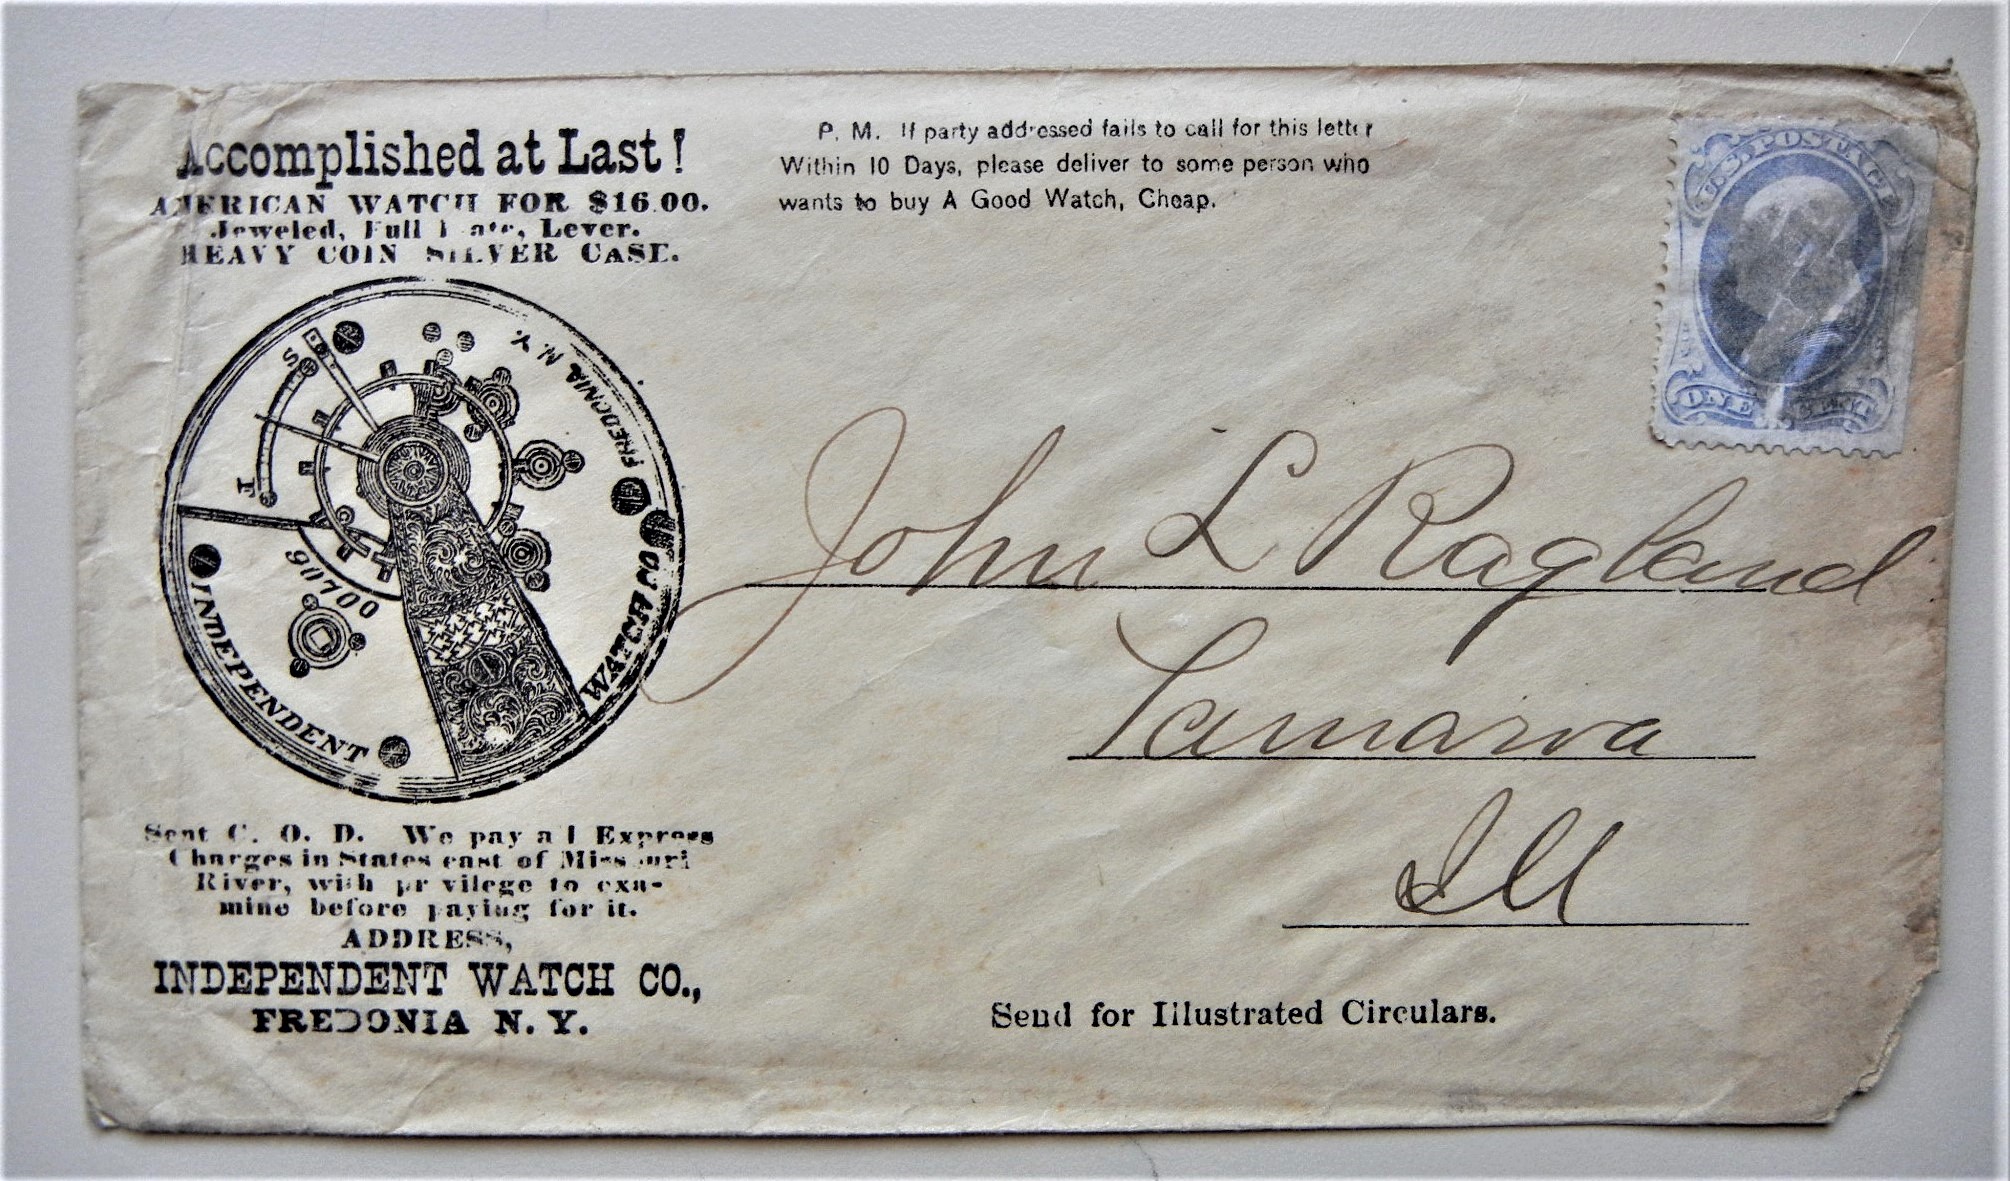 Accomplished at Last!
AMERICAN WATCH FOR $16.00.
Jeweled, Full Plate, Lever.
HEAVY COIN SILVER CASE.
S
F
FREDONIA N. Y.
90700
INDEPENDENT
WATCH CO
Sent C. O. D. We pay all Express
Charges in States east of Missouri
River, with privilege to exa-
mine before paying for it.
ADDRESS,
INDEPENDENT WATCH CO.,
FREDONIA N. Y.
P. M. If party addressed fails to call for this letter
Within 10 Days, please deliver to some person who
wants to buy A Good Watch, Cheap.
U.S. POSTAGE
ONE CENT
John L Ragland
Tamarva
Ill
Send for Illustrated Circulars.